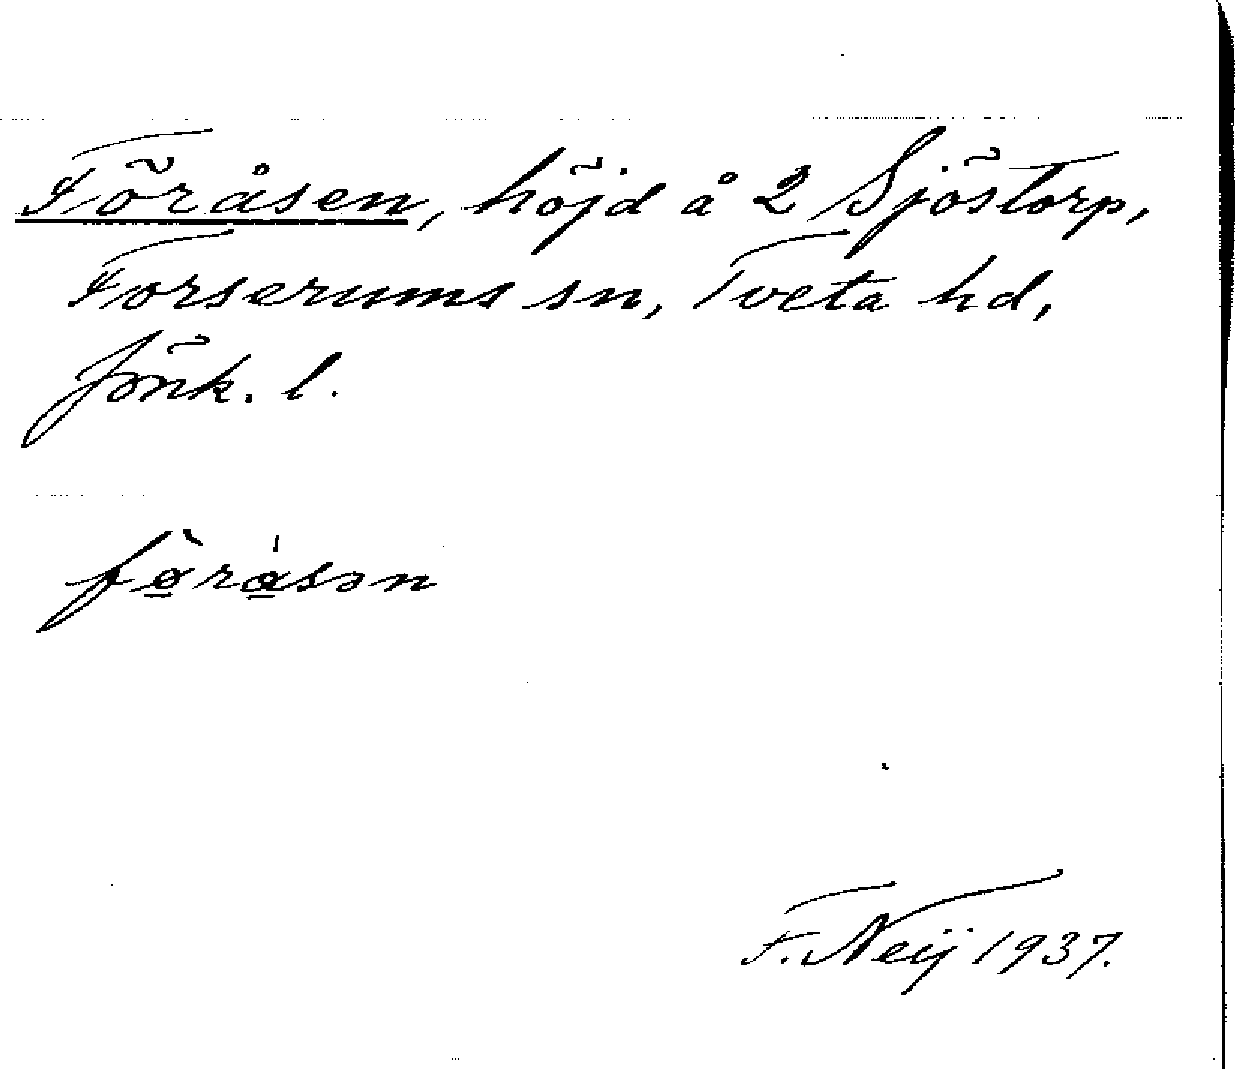 Föråsen, höjd å 2 Sjöstorp,
Forserums sn, Tveta hd,
Jönk. l.
fø̠̀rɑ̠́sən
F. Neij 1937.